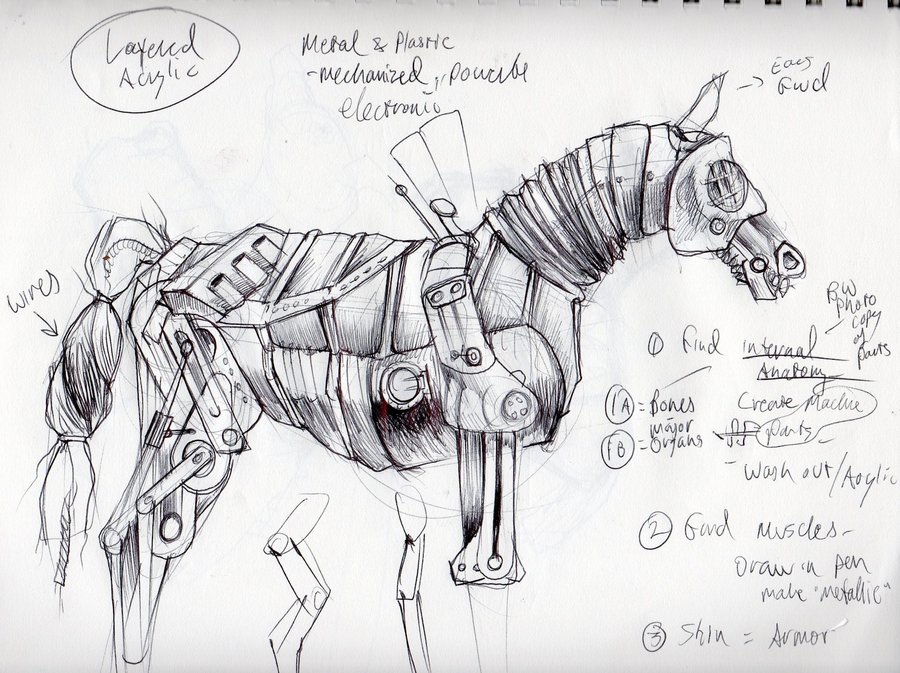 Layered
Acrylic
Metal & Plastic
- mechanized,
electronic
Ears
Fwd
wires
BW
Photo
copy
of
parts
① Find internal
Anatomy
1A = Bones
1B = major
organs
Create Machine
parts -
- wash out / Acrylic
② Find Muscles -
Draw in pen
make "metallic"
③ Skin = Armor